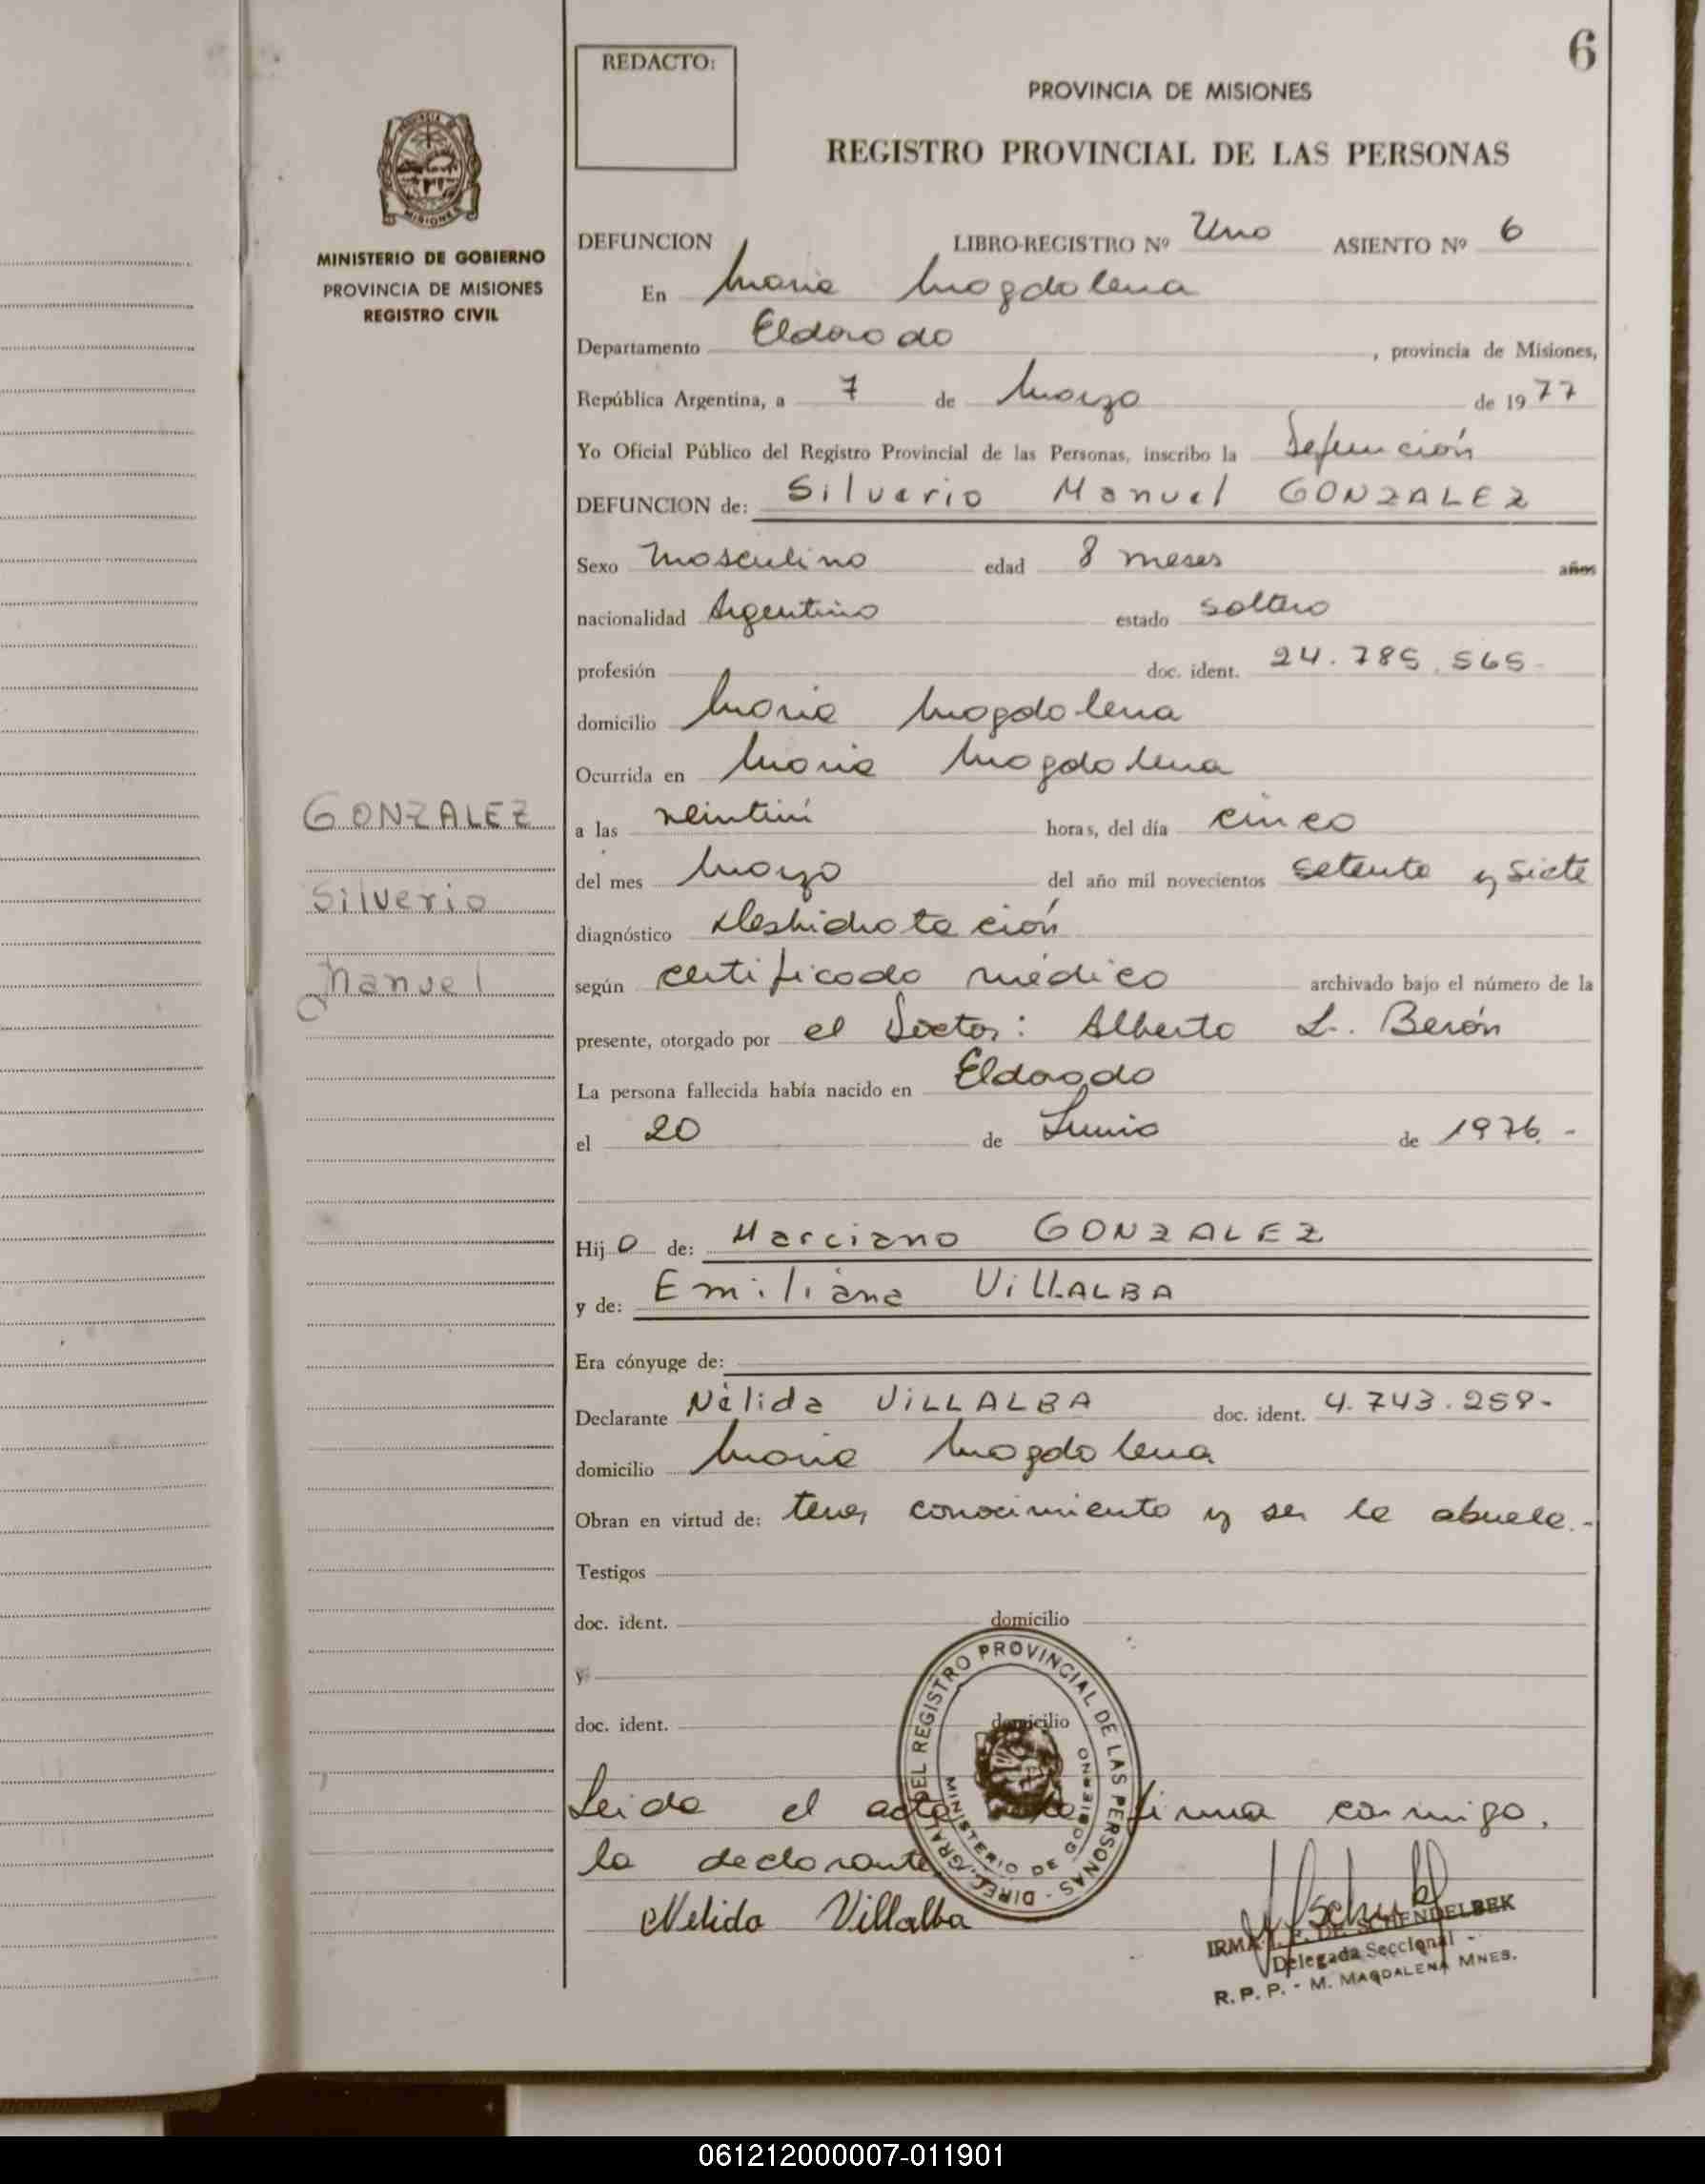 6
REDACTO:
PROVINCIA DE MISIONES
REGISTRO PROVINCIAL DE LAS PERSONAS
MINISTERIO DE GOBIERNO
PROVINCIA DE MISIONES
REGISTRO CIVIL
DEFUNCION LIBRO-REGISTRO Nº Uno ASIENTO Nº 6
En Maria Magdalena
Departamento Eldorado, provincia de Misiones,
República Argentina, a 7 de Marzo de 1977
Yo Oficial Público del Registro Provincial de las Personas, inscribo la Defunción
DEFUNCION de: Silverio Manuel GONZALEZ
Sexo Masculino edad 8 meses años
nacionalidad Argentino estado soltero
profesión doc. ident. 24.785.565-
domicilio Maria Magdalena
Ocurrida en Maria Magdalena
GONZALEZ
Silverio
Manuel
a las horas, del día cinco
del mes Marzo del año mil novecientos setenta y siete
diagnóstico Deshidratación
según certificado médico archivado bajo el número de la
presente, otorgado por el Doctor: Alberto L. Berón
La persona fallecida había nacido en Eldorado
el 20 de Junio de 1976.-
Hijo de: Marciano GONZALEZ
y de: Emiliana VILLALBA
Era cónyuge de:
Declarante Nélida VILLALBA doc. ident. 4.743.259-
domicilio Maria Magdalena
Obran en virtud de: tener conocimiento y ser la abuela.-
Testigos
doc. ident. domicilio
y
doc. ident. domicilio
Leida el acta la firma conmigo,
la declarante
DIREC. GRAL. DEL REGISTRO PROVINCIAL DE LAS PERSONAS -
MINISTERIO DE GOBIERNO
Nelida Villalba
IRMA DE SCHENDELBEK
Delegada Seccional -
R. P. P. - M. MAGDALENA MNES.
061212000007-011901